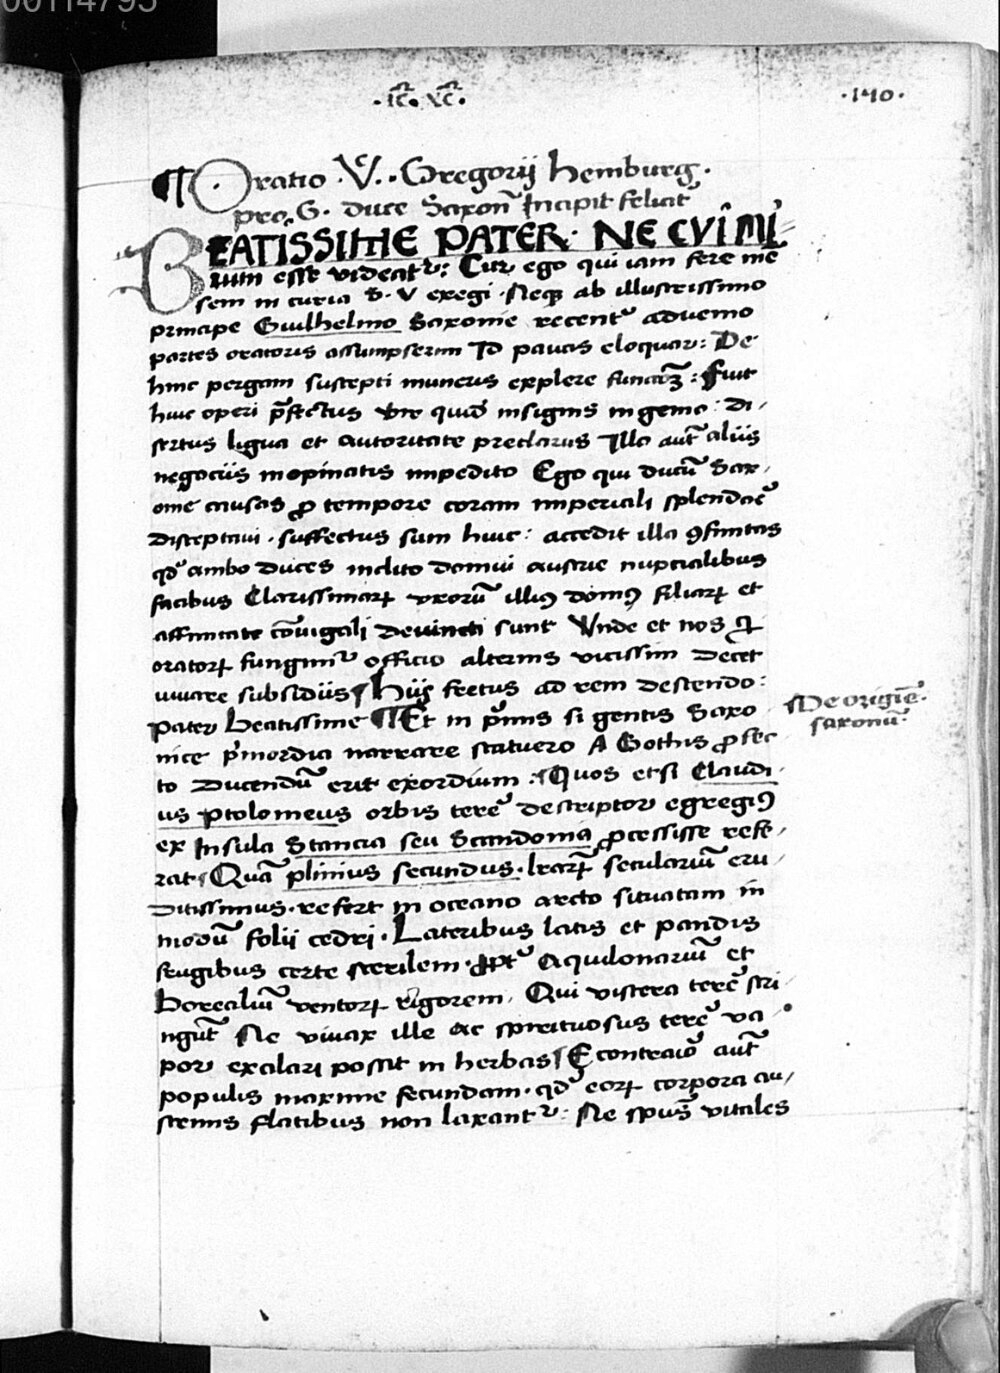 00114795
.ic̄. xc̄.
.140.
¶ Oratio .V̄. . Gregorij hemburg.
pro. G. duce Saxoñ Incipit felicit̃
BEATISSIME PATER. NE CVI MI
rum esse videat᷑: Cur ego qui iam fere me
sem in curia S. V exegi. Neqꝫ ab illustrissimo
principe Guilhelmo Saxonie recent᷑ aduemo
partes oratoris assumpserim Id paucis eloquar: De
hinc pergam suscepti muneris explere functõꝫ: Fuit
huic operi p̃fectus vir quid̃ insignis ingenio: di/
sertus ligua et autoritate preclarus Illo aut̃ aliis
negociis inopinatis impedito Ego qui ducũ Sax/
onie causas ꝓ tempore coram imperiali splendoẽ
disceptaui. suffectus sum huic: accedit illa ꝯfinitas
qd̃ ambo duces inclito domui austrie nuptialibus
facibus Clarissimaꝝ vxorũ illiꝰ domꝰ filiaꝝ et
affinitate cõiugali deuincti sunt Vnde et nos qͥ
oratoꝝ fungim᷑ officio alternis vicissim decet
iuuare subsidiis ¶ hijs fretus ad rem descendo:
Pater beatissime ¶ Et in p̃mis si gentis Saxo
nice p̃mordia narrare statuero A Gothis ꝓfec
to ducendũ erit exordium: Quos etsi Claudi
us Ptolomeus orbis terre᷑ descriptor egregiꝰ
ex Insula Stancia seu Scandonia ꝓcessisse refe/
rat Quã plinius secundus. lr̃aꝝ seculariũ eru/
ditissimus. refert in oceano arcto situatam in
modũ folii cedri. Lateribus latis et pandis
frugibus certe sterilem. ꝓpt᷑ Aquilonariũ et
borealiũ ventoꝝ rigorem. Qui viscera terre᷑ stri/
ngũt Ne viuax ille ac spirituosus terre᷑ va
por exalari possit in herbas ¶ E contraio᷑ aut̃
populis maxime fecundam. qd̃ eoꝝ corpora au/
strinis flatibus non laxant᷑: Ne spũs vitales
De origiñe.
saxonũ.